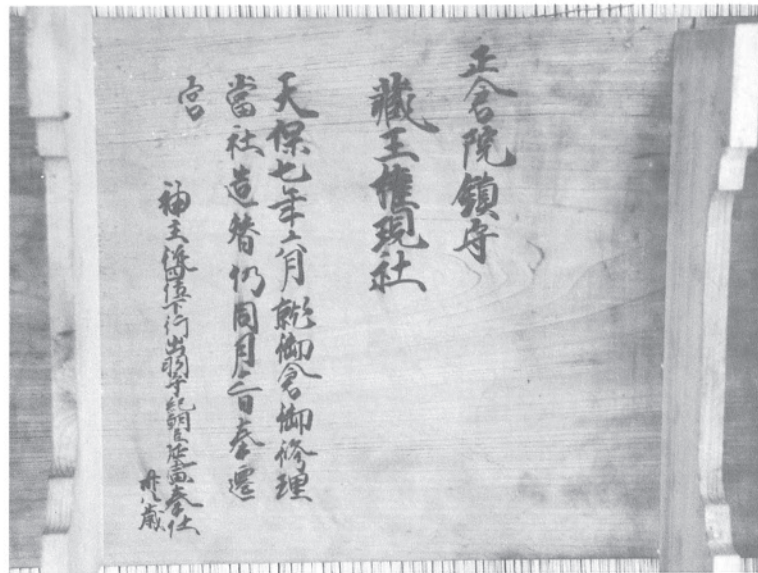 正倉院鎮守
藏王権現社
天保七年六月就御倉御修理
當社造替仍同月 日奉遷
宮
神主従四位下行出羽守紀朝臣延寅奉仕
卅八歳